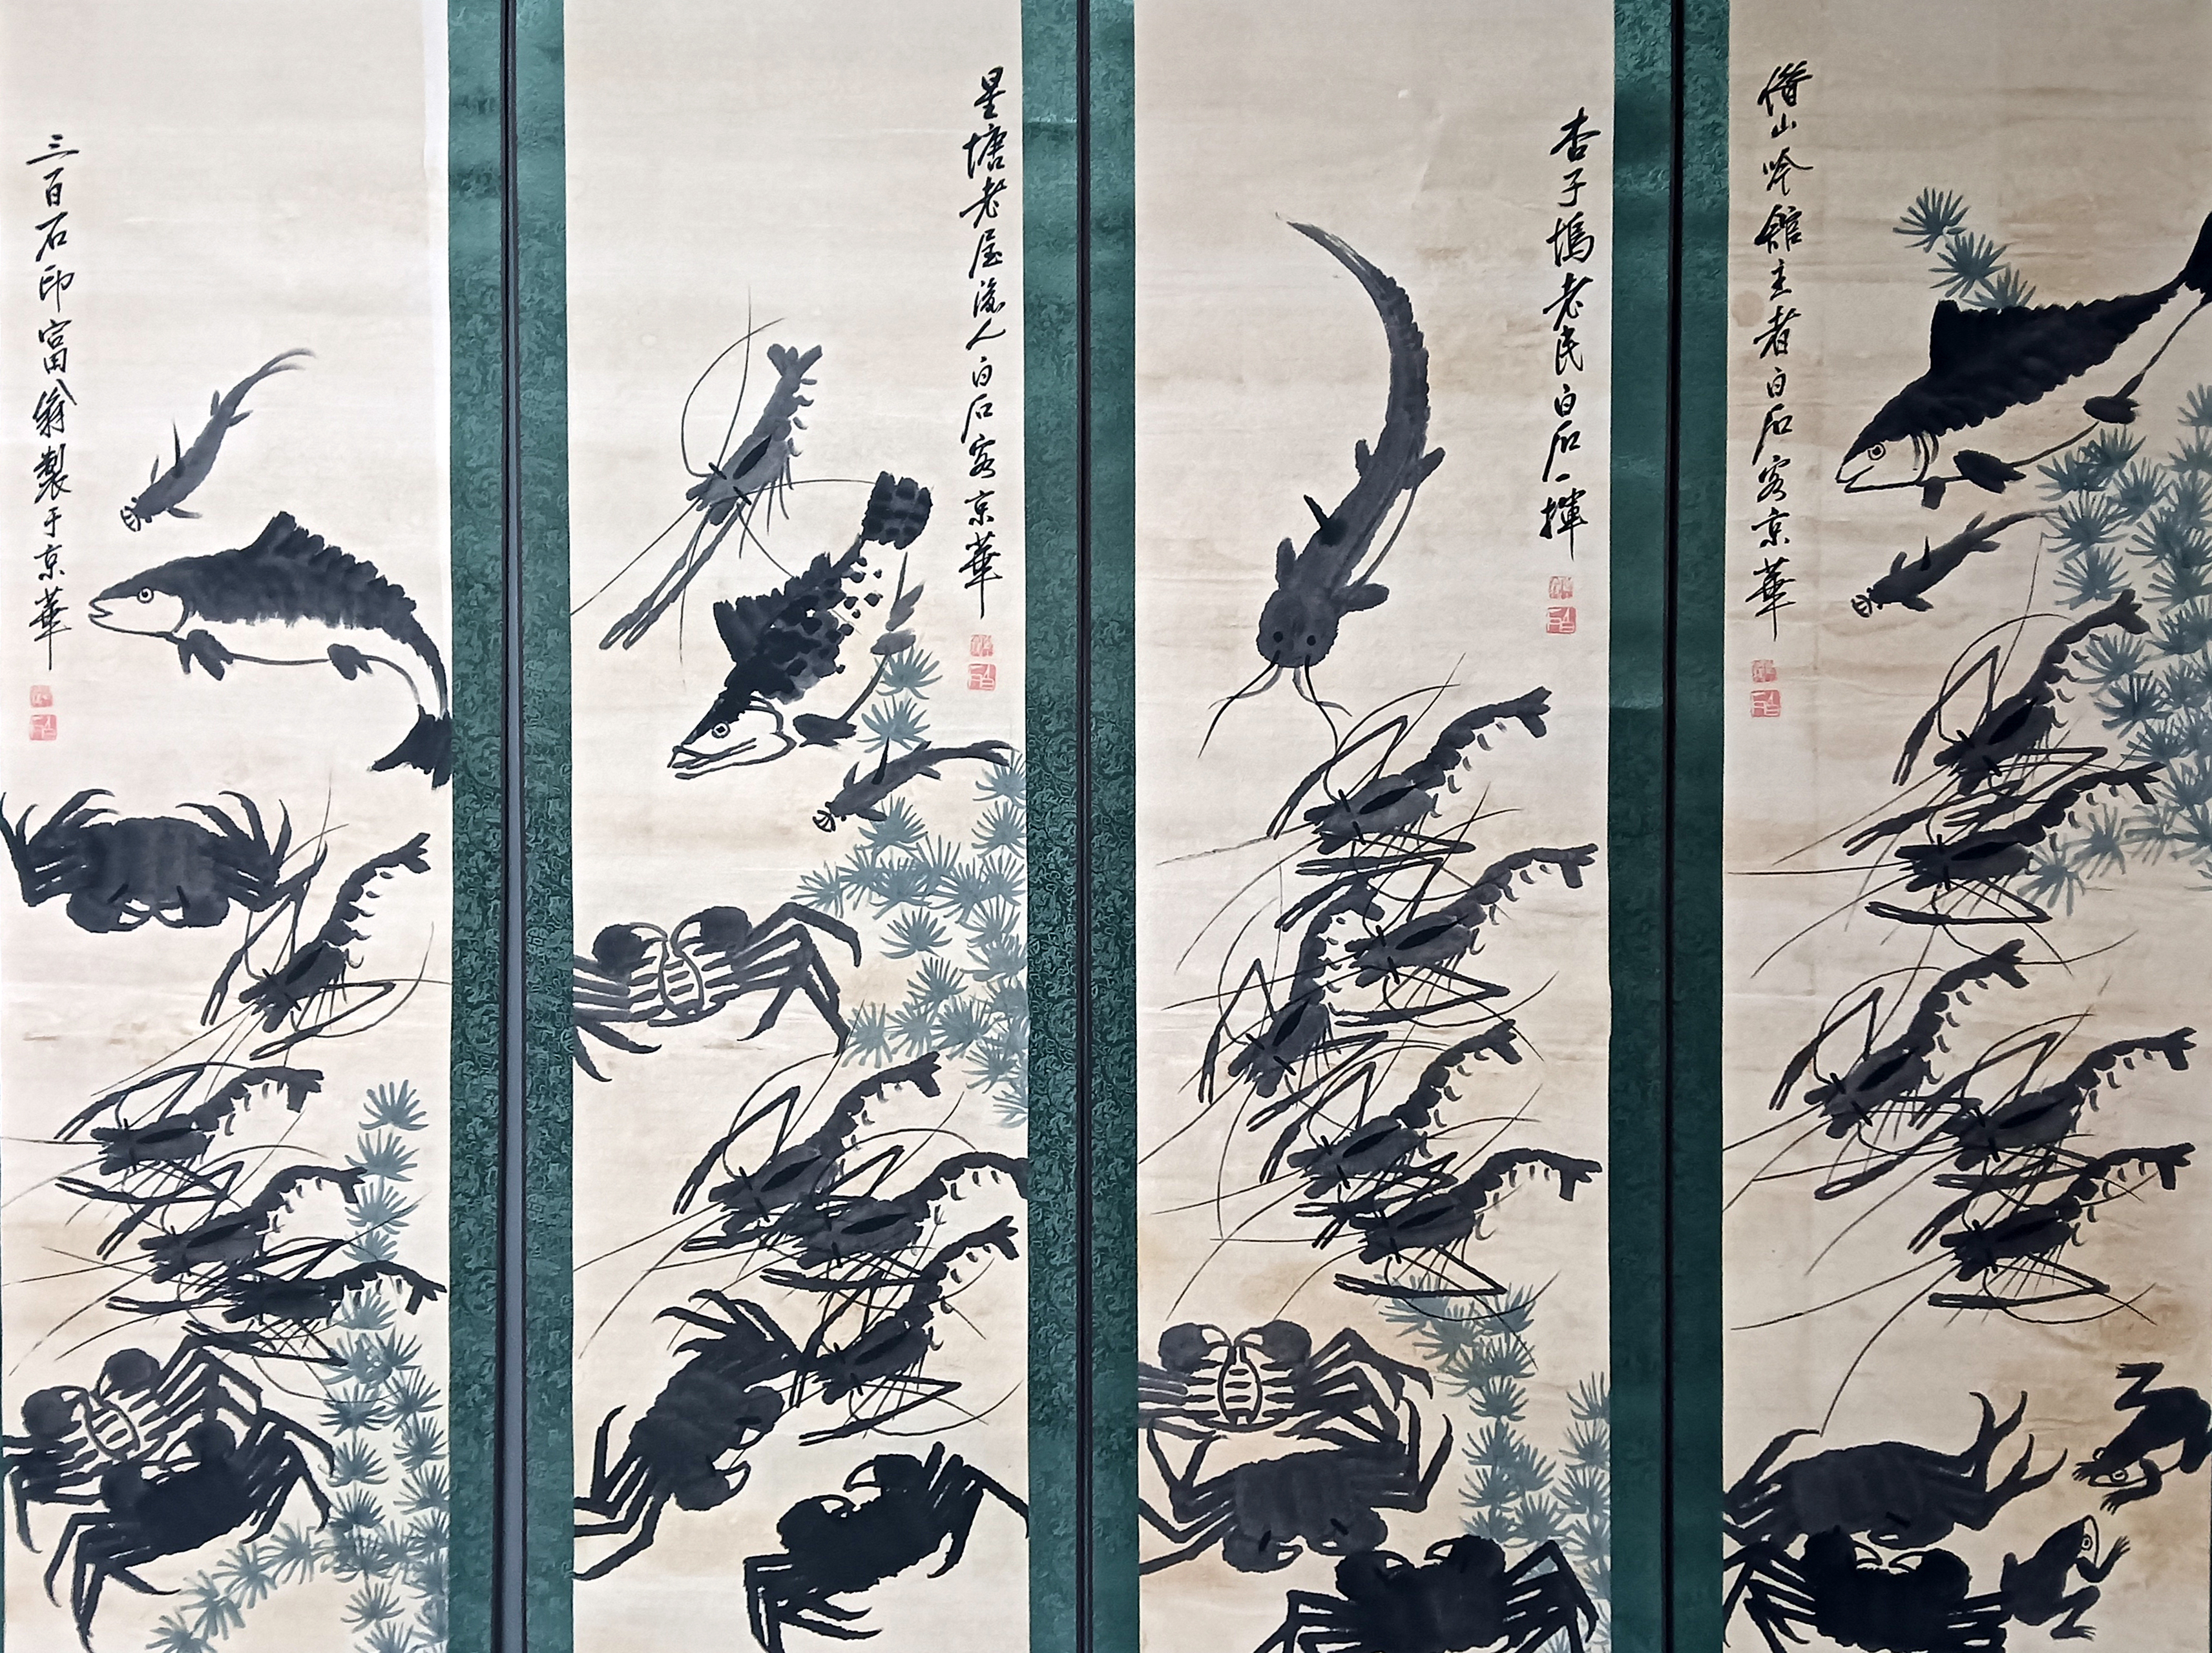 借山吟館主者白石客京華
杏子塢老民白石一揮
星塘老屋後人白石客京華
三百石印富翁製于京華